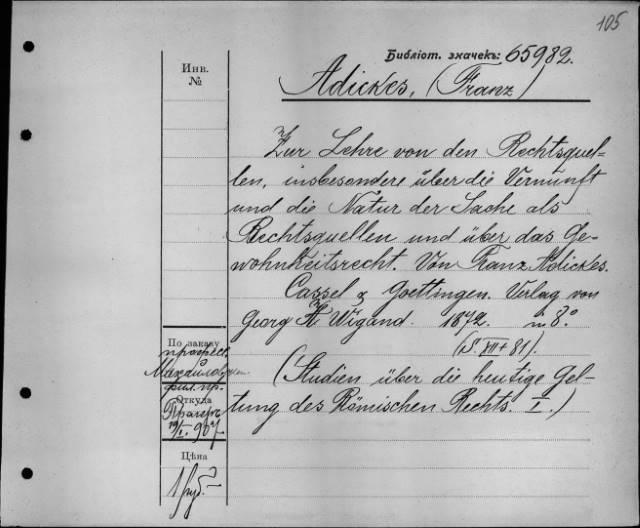 105
Библіот. значекъ: 65982.
Инв.
№
Adickes, (Franz)
Zur Lehre von den Rechtsquel-
len, insbesondere über die Vernunft
und die Natur der Sache als
Rechtsquellen und über das Ge-
wohnheitsrecht. Von Franz Adickes.
Cassel & Goettingen. Verlag von
Georg H. Wigand. 1872. in 8°.
(S. VIII + 81).
(Studien über die heutige Gel-
tung des Römischen Rechts. I.)
По заказу
професс.
Откуда
907
Цѣна
1 руб.